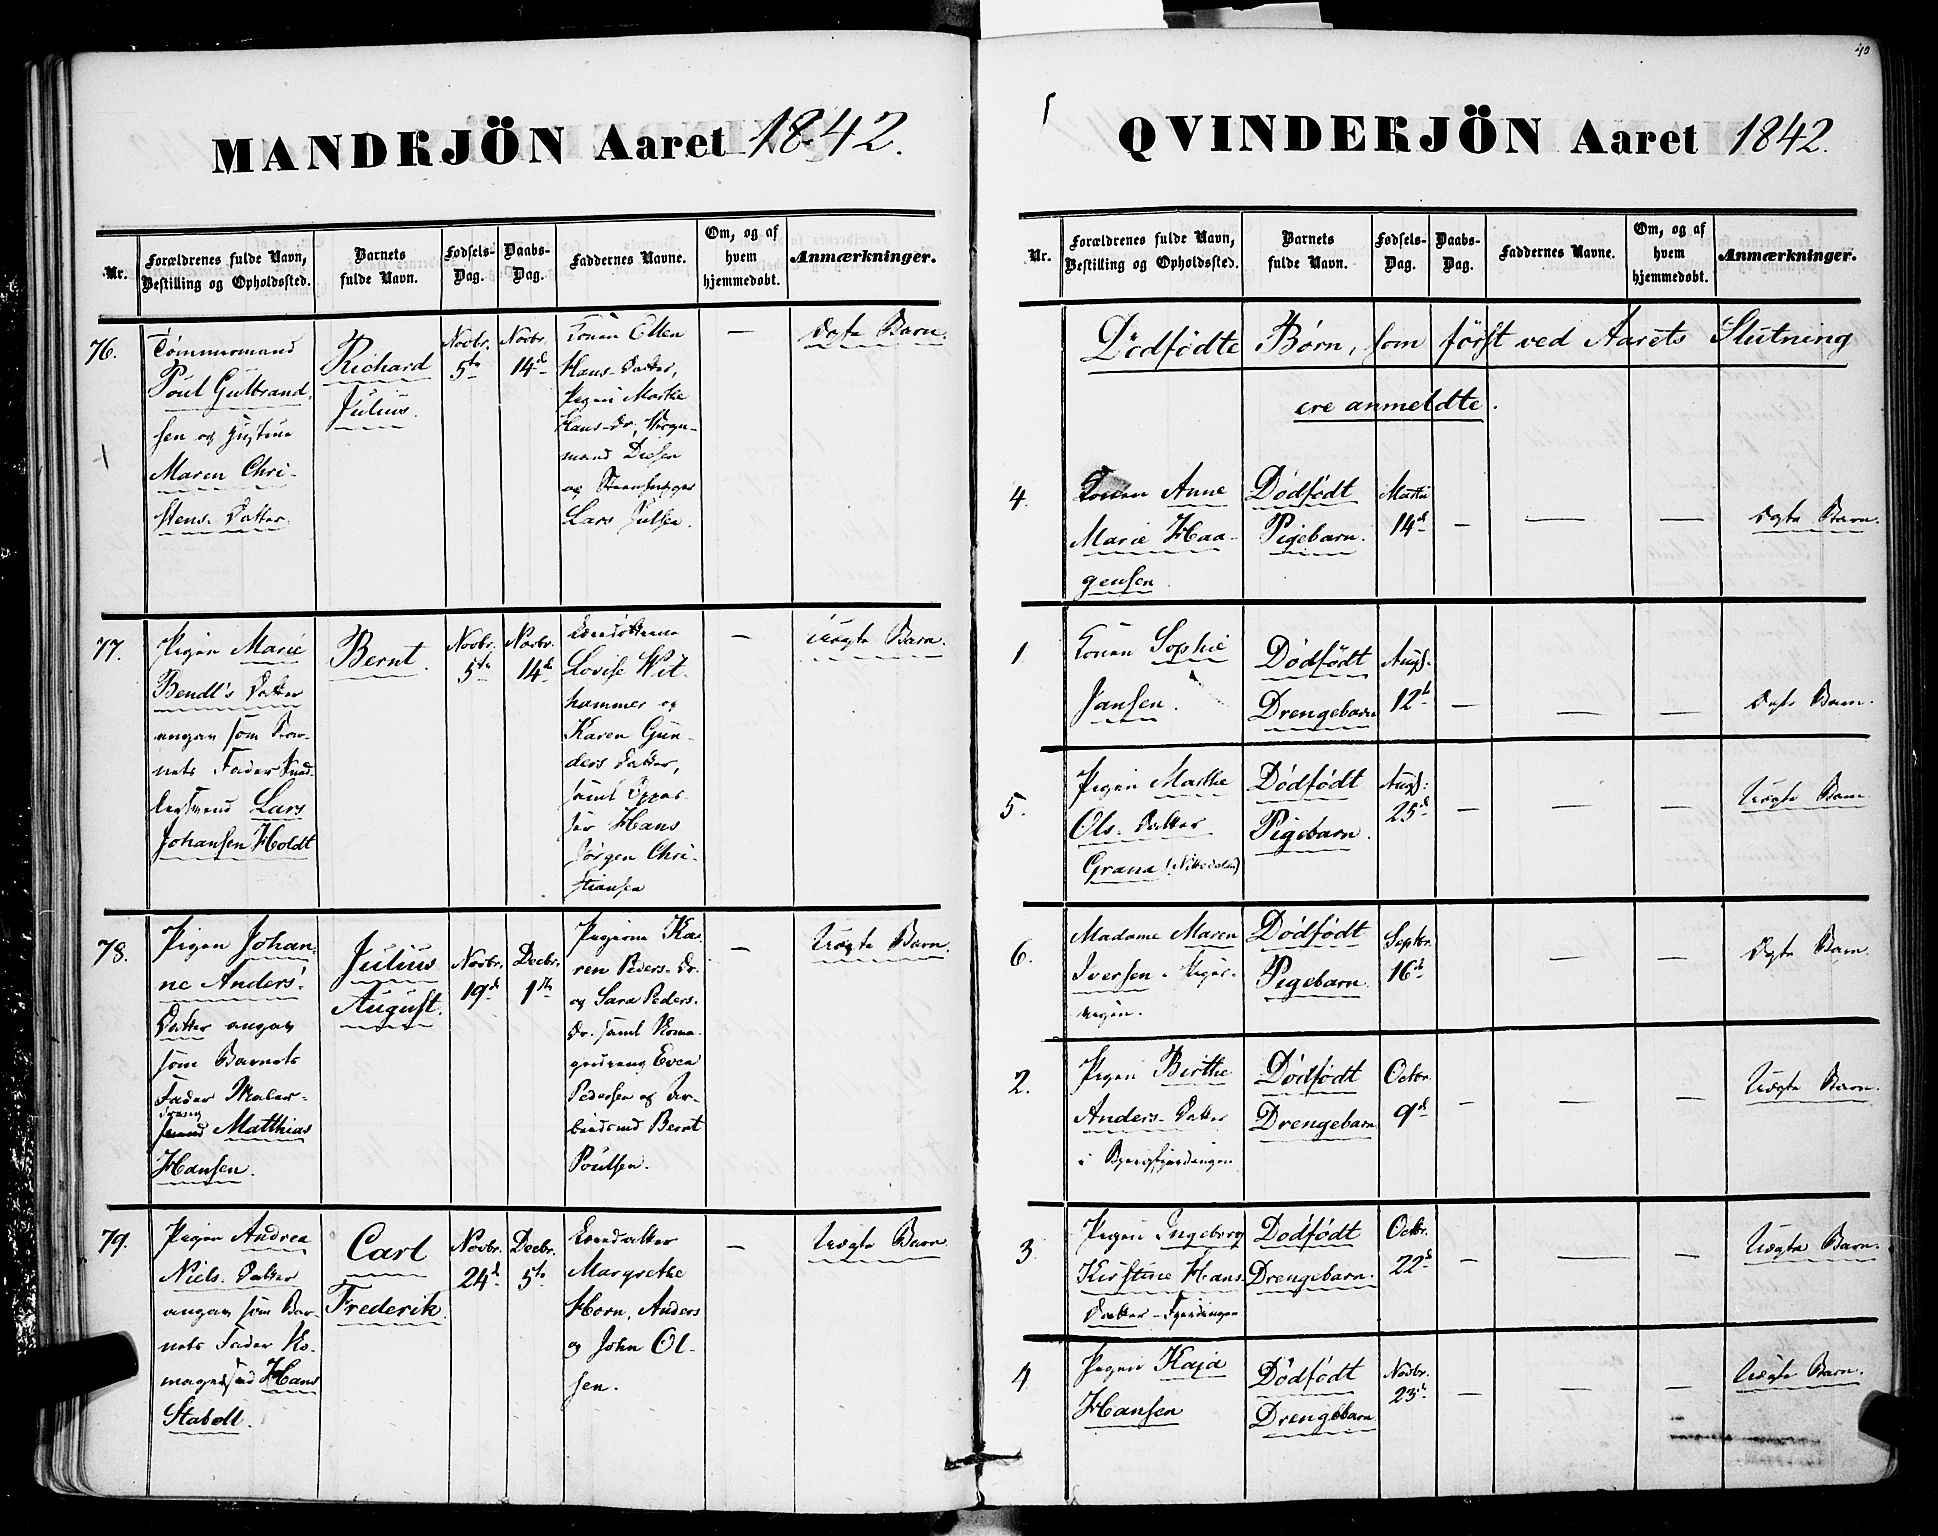 40
MANDKJÖN Aaret 1842.
Nr.
Forældrenes fulde Navn,
Bestilling og Opholdssted.
Barnets
fulde Navn.
Fødsels-
Dag.
Daabs-
Dag.
Faddernes Navne.
Om, og af
hvem
hjemmedøbt.
Anmærkninger.
76.
Tømmermand
Poul Gulbrand
sen og Hustrue
Maren Chri-
stens-Datter.
Richard
Julius.
Novbr.
5te
Novbr.
14d
Konen Ellen
Hans-Datter,
Pigen Marthe
Hans-Dr,
mand
og
Lars Julsen.
—
Ægte Barn.
77.
Pigen Marie
Bendt's Datter
angav som Bar-
nets Fader Sned-
kersvend Lars
Johansen Holdt
Bernt.
Novbr.
5te
Novbr.
14d
Lovise Wil-
hammer og
Karen Gun-
ders Datter,
samt
Hans
Jørgen Chri-
stiansen
—
Uægte Barn.
78.
Pigen Johan-
ne Anders'
Datter angav
som Barnets
Fader Maler-
dreng
svend Matthias
Hansen.
Julius
August.
Novbr.
19d
Decbr.
1ste
Pigerne Ka-
ren Peders-Dr.
og Sara Peders-
Dr. samt Skoma-
gerdreng Even
Pedersen og Ar-
beidsmd Bernt
Poulsen.
—
Uægte Barn.
79.
Pigen Andrea
Niels-Datter
angav som Bar-
nets Fader Sko-
magersvd Hans
Stabell.
Carl
Frederik.
Novbr.
24d
Decbr.
5te
Margrethe
Horn, Anders
og John Ol-
sen.
—
Uægte Barn.
QVINDEKJÖN Aaret 1842.
Nr.
Forældrenes fulde Navn,
Bestilling og Opholdssted.
Barnets
fulde Navn.
Fødsels-
Dag.
Daabs-
Dag.
Faddernes Navne.
Om, og af
hvem
hjemmedøbt.
Anmærkninger.
Dødfødte Børn, som først ved Aarets Slutning
ere anmeldte.
4.
Konen Anne
Marie Haa-
gensen.
Dødfødt
Pigebarn.
Martii
14d
—
—
—
Ægte Barn.
1.
Konen Sophie
Jansen.
Dødfødt
Drengebarn
Augs.
12te
—
—
—
Ægte Barn.
5.
Pigen Marthe
Ols-Datter
Grana
Dødfødt
Pigebarn.
Augs:
25d
—
—
—
Uægte Barn
6.
Madame Maren
Iversen -
Dødfødt
Pigebarn.
Septbr.
16d
—
—
Ægte Barn.
2.
Pigen Birthe
Anders-Datter
i Bjergfjerdingen
Dødfødt
Drengebarn
Octbr.
9d
—
—
—
Uægte Barn.
3.
Pigen Ingeborg
Kirstine Hans
Datter - Fjerdingen
Dødfødt
Drengebarn.
Octbr.
22d
—
—
—
Uægte Barn.
4.
Pigen Kaja
Hansen
Dødfødt
Drengebarn.
Novbr.
23d
—
—
—
Uægte Barn.